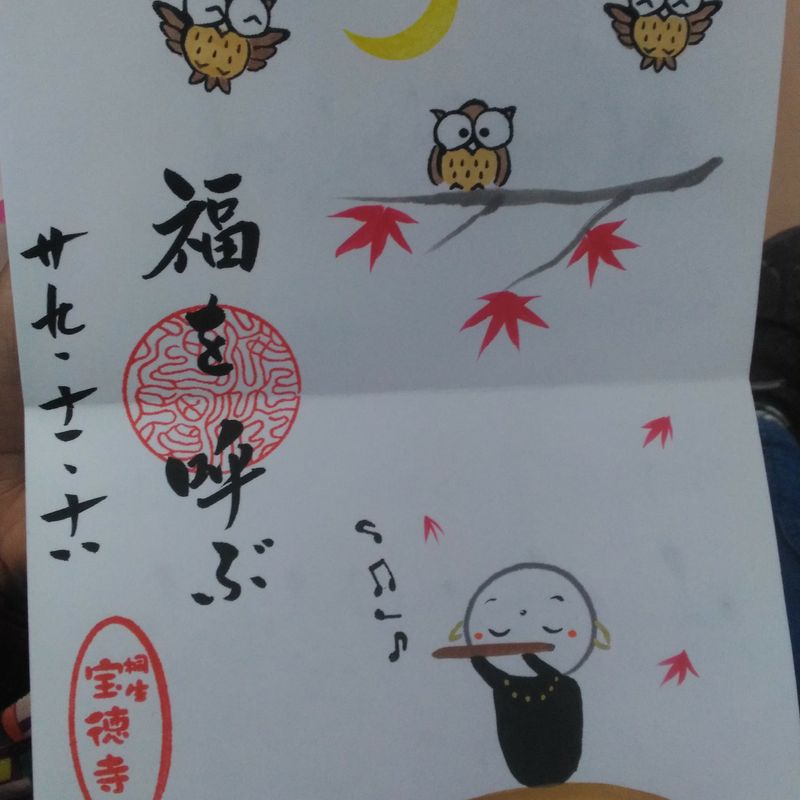 福を呼ぶ
廿九・十一・十八
桐生
宝徳寺